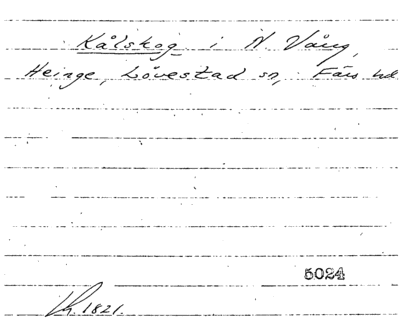 Kålskog i N Vång,
Heinge, Lövestad sn, Färs hd
5024
1821.